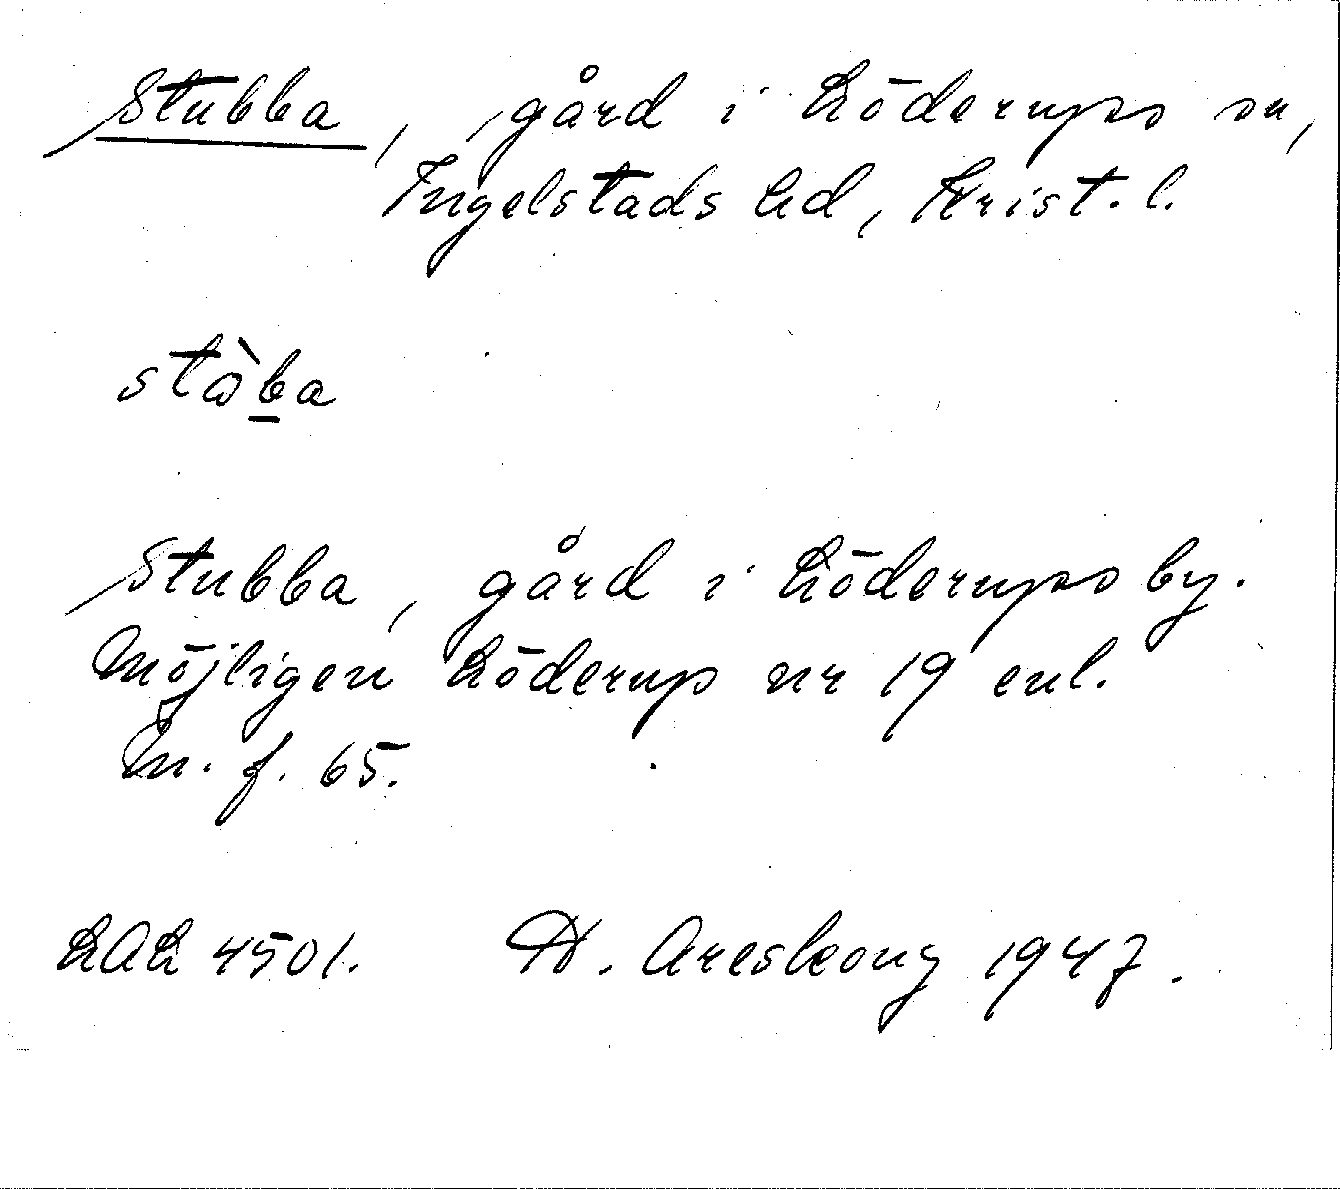 Stubba, gård i Löderups sn,
Ingelstads hd, Krist. l.
stɷ̀b̲a
Stubba, gård i Löderups by.
Möjligen Löderup nr 19 enl.
m. f. 65.
LAL 4501. H. Areskoug 1947.